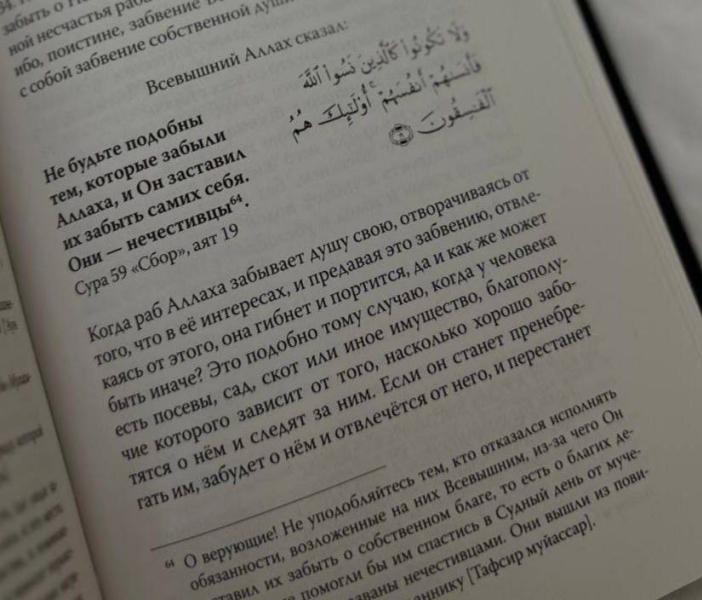 забыть о
ной несчастья
ибо, поистине, забвение
с собой забвение собственной души
Всевышний Аллах сказал:
وَلَا تَكُونُوا۟ كَٱلَّذِينَ نَسُوا۟ ٱللَّهَ
فَأَنسَىٰهُمْ أَنفُسَهُمْ ۚ أُو۟لَـٰٓئِكَ هُمُ
ٱلْفَـٰسِقُونَ ۝١٩
Не будьте подобны
тем, которые забыли
Аллаха, и Он заставил
их забыть самих себя.
Они — нечестивцы⁶⁴.
Сура 59 «Сбор», аят 19
Когда раб Аллаха забывает душу свою, отворачиваясь от
того, что в её интересах, и предавая это забвению, отвле-
каясь от этого, она гибнет и портится, да и как же может
быть иначе? Это подобно тому случаю, когда у человека
есть посевы, сад, скот или иное имущество, благополу-
чие которого зависит от того, насколько хорошо забо-
тятся о нём и следят за ним. Если он станет пренебре-
гать им, забудет о нём и отвлечётся от него, и перестанет
⁶⁴ О верующие! Не уподобляйтесь тем, кто отказался исполнять
обязанности, возложенные на них Всевышним, из-за чего Он
ставил их забыть о собственном благе, то есть о благих де-
помогли бы им спастись в Судный день от муче-
нечестивцами. Они вышли из пови-
[Тафсир муйассар].